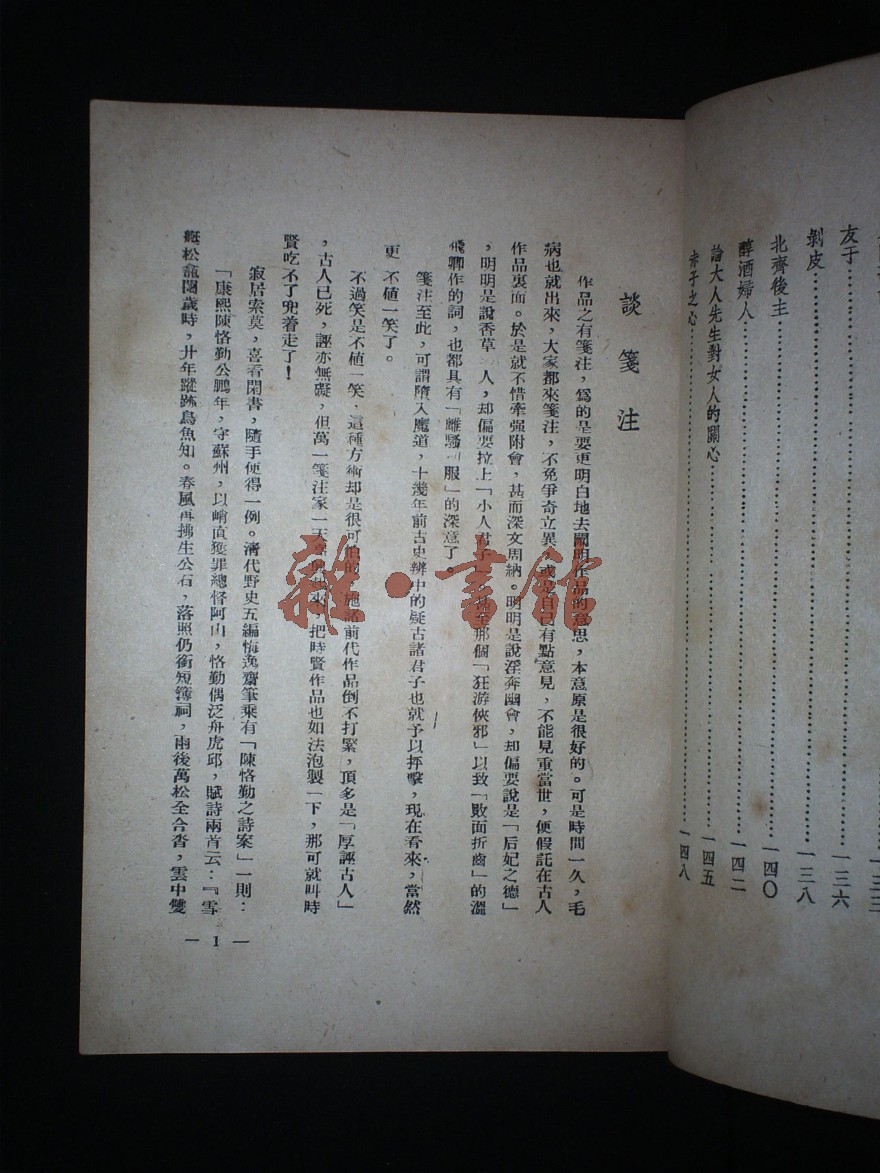 友于……………………一三六
剝皮……………………一三八
北齊後主……………………一四〇
醇酒婦人……………………一四二
論大人先生對女人的關心……………………一四五
赤子之心……………………一四八
談箋注
作品之有箋注，爲的是要更明白地去闡明作品的意思，本意原是很好的。可是時間一久，毛
病也就出來，大家都來箋注，不免爭奇立異，或是自己有點意見，不能見重當世，便假託在古人
作品裏面。於是就不惜牽强附會，甚而深文周納。明明是說淫奔幽會，却偏要說是「后妃之德」
，明明是說香草 人，却偏要拉上「小人君子」 至那個「狂游俠邪」以致「敗面折齒」的溫
飛卿作的詞，也都具有「離騷 服」的深意了。
箋注至此，可謂墮入魔道，十幾年前古史辨中的疑古諸君子也就予以抨擊，現在看來，當然
更 不値一笑了。
不過笑是不値一笑，這種方術却是很可怕的，施諸前代作品倒不打緊，頂多是「厚誣古人」
，古人已死，誣亦無礙，但萬一箋注家一天 來，把時賢作品也如法泡製一下，那可就叫時
賢吃不了兜着走了！
寂居索莫，喜看閑書，隨手便得一例。淸代野史五編悔逸齋筆乘有「陳恪勤之詩案」一則：
「康熙陳恪勤公鵬年，守蘇州，以峭直獲罪總督阿山，恪勤偶泛舟虎邱，賦詩兩首云：『雪
艇松龕閱歲時，廿年蹤跡鳥魚知。春風再拂生公石，落照仍銜短簿祠，雨後萬松全合沓，雲中雙
— 1 —
雜·書館